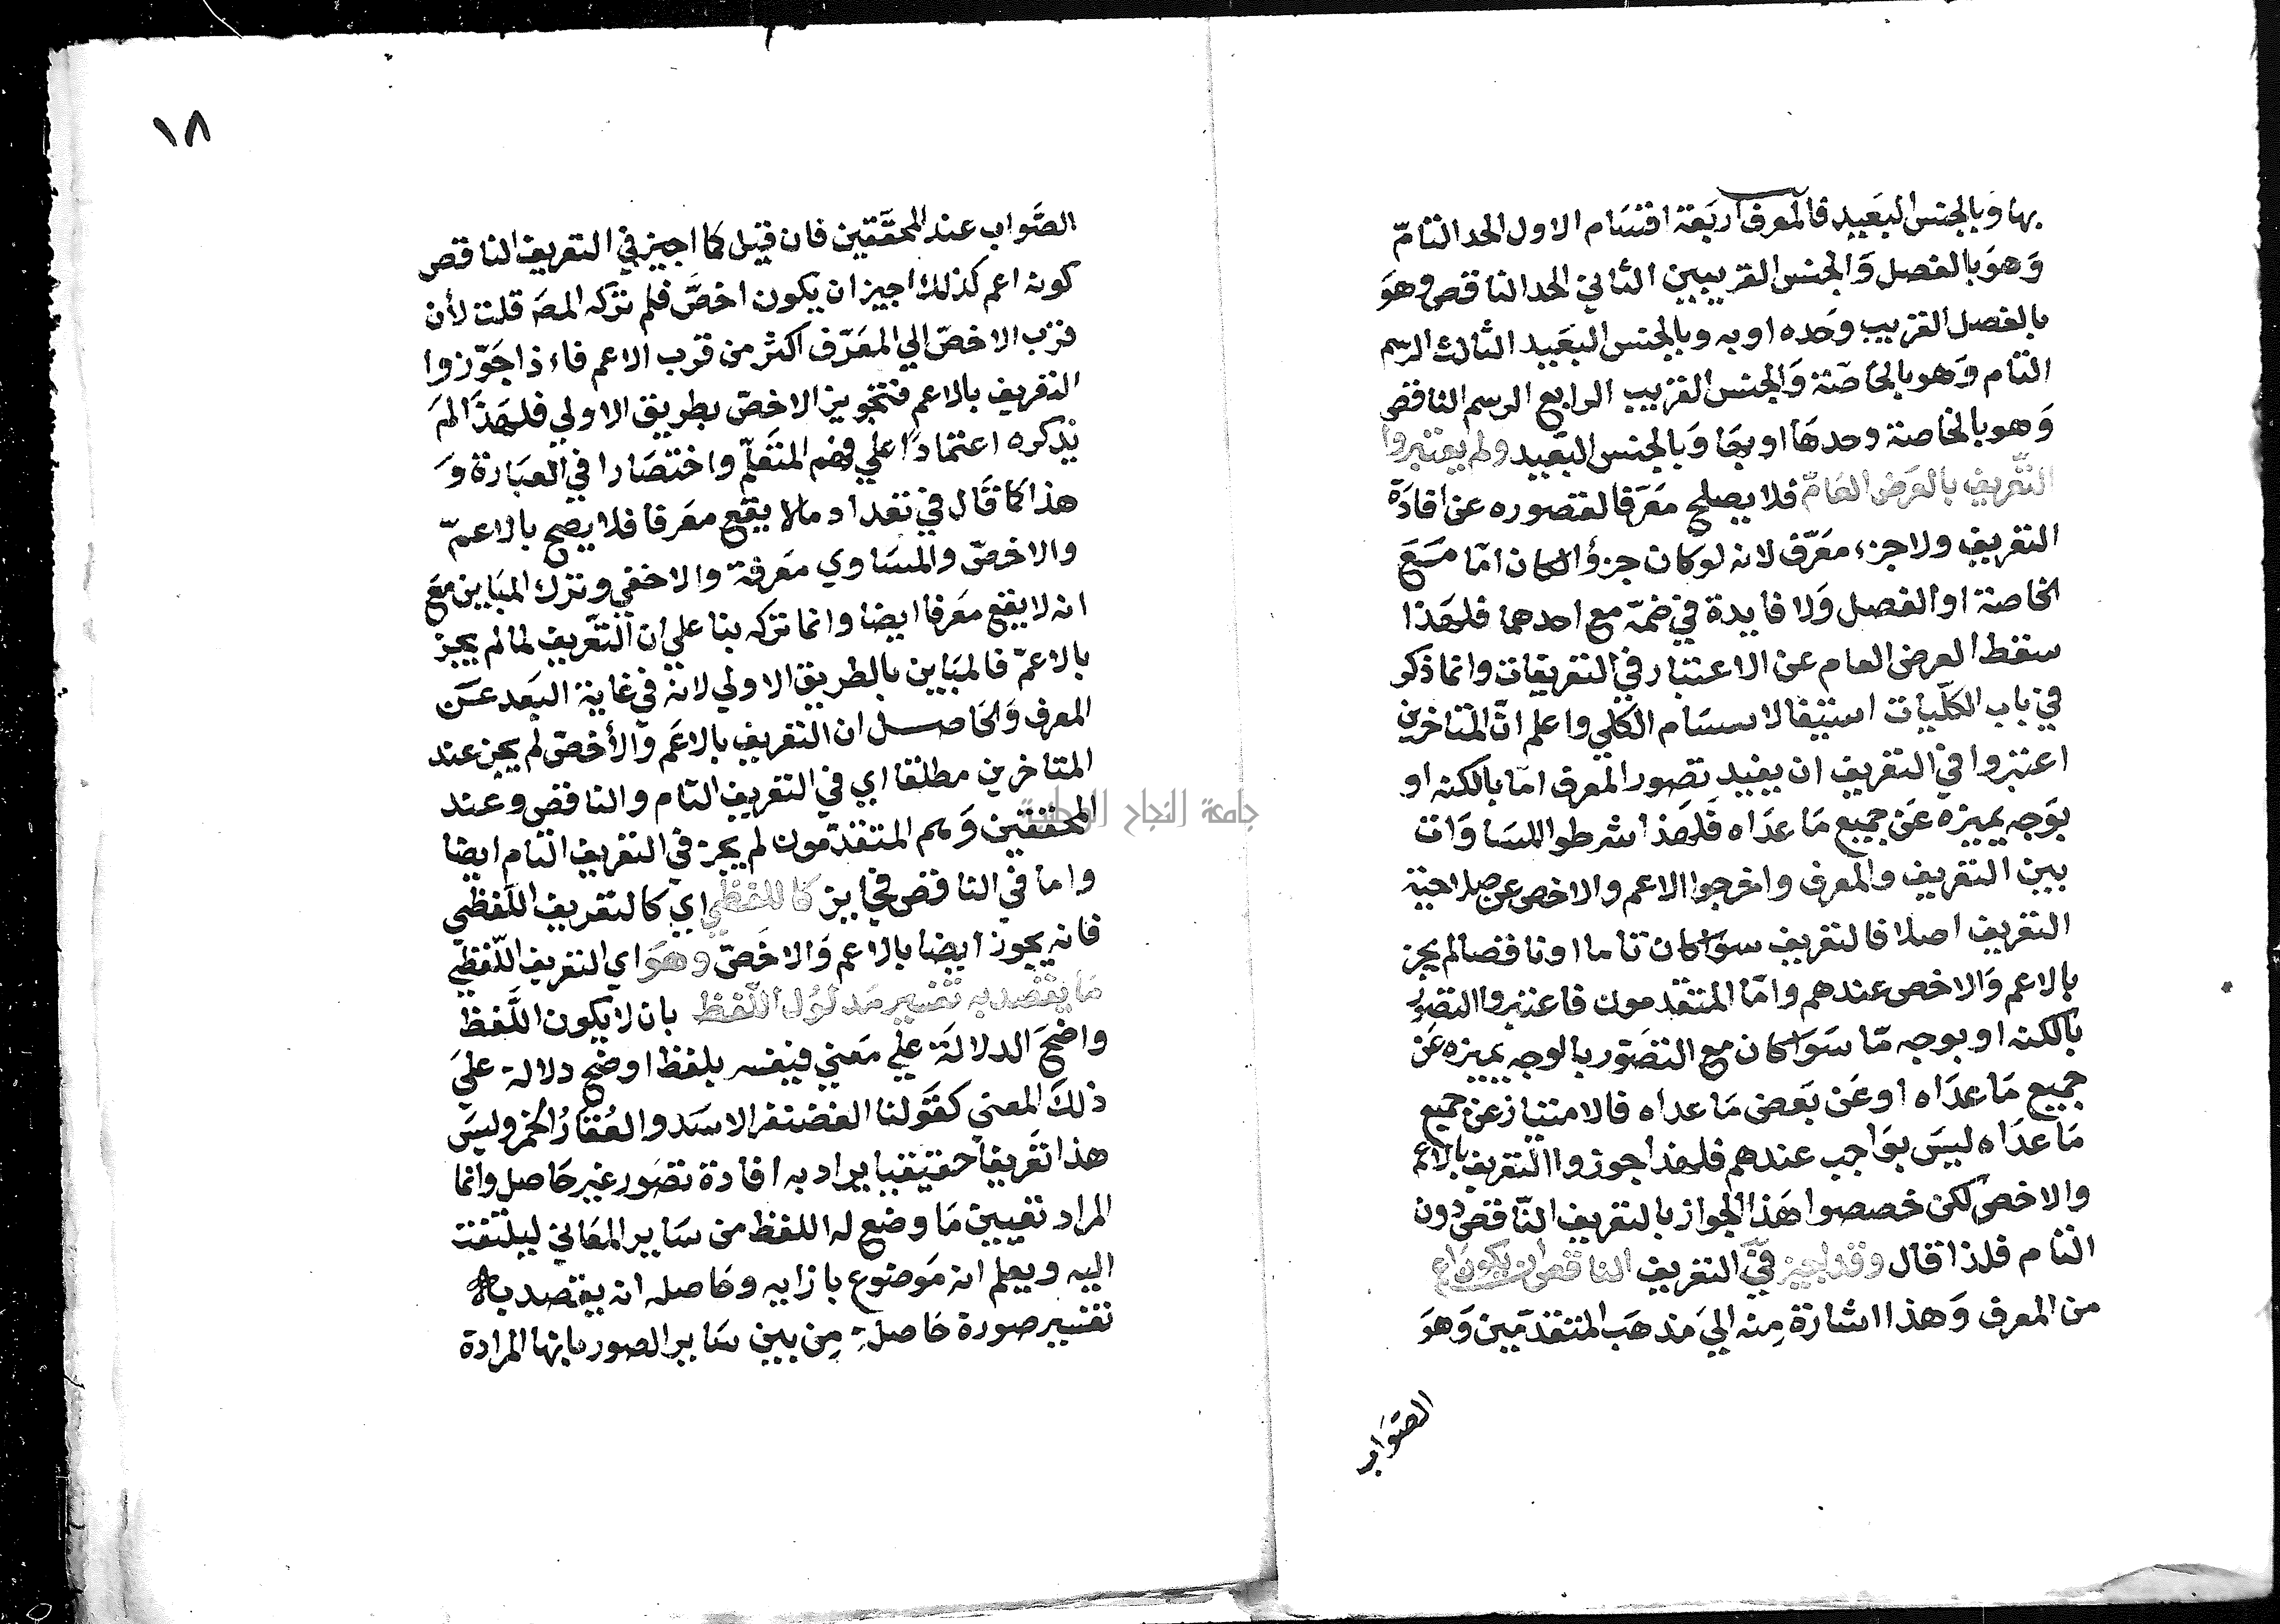 بها وبالجنس البَعَيد فالمعرف اربَعَة اقسَام الاول الحد التامّ
وَهوَ بالفصل وَالجنس القريبين الثاني الحد الناقص وهوَ
بالفصل القريب وَحده او به وبالجنس البَعَيد الثالث الرسم
التام وَهو بالخاصّة وَالجنس القريب الرابع الرسم الناقص
وَهو بالخاصة وحدهَا او بها وَبالجنس البَعيد ولم يعتبروا
التّعريف بالعَرض العَامّ فلا يصلح مَعَرفا لقصوره عن افادَة
التعريف ولا جزء معَرّف لانه لو كان جزؤًا لكان امّا مَعَ
الخاصة او الفصل وَلا فايدة في ضمّه مع احدهما فلهَذا
سقط العرض العام عن الاعتبار في التعريفات وانما ذكر
في باب الكلّيات استيفا لاقسَام الكلي واعلم انّ المتاخرين
اعتبروا في التعريف ان يفيد تصور المعرف امّا بالكنه او
بوَجه يميزه عَن جميع مَا عدَاه فَلهَذا شرطوا المسَاوَات
بين التعريف والمعرف واخرجوا الاعم والاخص عن صلاحية
التعريف اصلا فالتعريف سوَا كان تاما او ناقصا لم يجز
بالاعم وَالاخص عندهم وامّا المتقدمون فاعتبروا التصور
بالكنه او بوجه مّا سَوَا كان مع التصَوّر بالوجه يميزه عَن
جميع مَا عدَاه او عَن بَعض مَا عداه فالامتياز عن جميع
مَا عدَاه ليسَ بوَاجب عندهم فلهذا جوزوا التعريف بالاعم
والاخص لكن خصصوا هَذا الجواز بالتعريف النّاقص دون
التام فلذا قال وقد اجيز في التعريف الناقص ان يكون اعم
من المعرف وَهذا اشارة مِنه الي مَذهَب المتقدمَين وَهوَ
الصّوَاب
١٨
الصَّواب عند المحقَّقين فان قيل كما اجيز في التعريف الناقص
كونه اعم كذلك اجيز ان يكون اخصَّ فلم تركه المصَ قلت لأن
قرب الاخصّ الي المعَرّف اكثر من قرب الاعم فاءذا جَوّزوا
التعريف بالاعم فتجويز الاخصّ بطريق الاولي فلهَذَا لم
يذكره اعتمادًا علي فهم المتعَلّم واختصَارا في العبَارة وَ
هذا كما قَال في تعداد ما لا يقع معَرفا فلا يصح بالاعمّ
والاخصّ والمسَاوي مَعرفة والاخفي وترك المبَاين معَ
انه لا يقع مَعرفا ايضا وانما تركه بنا علي ان التّعَريف لما لم يجز
بالاعمّ فالمبَاين بالطريق الاولي لانه في غاية البَعد عَن
المعرف وَالحَاصل ان التعريف بالاعَم وَالأخصّ لم يجز عند
المتاخرين مطلقا اي في التعريف التام والناقص وعند
المحققين وَهم المتقدّمون لم يجز في التعريف التام ايضا
واما في الناقص فجايز كاللفظي اي كالتعريف اللّفظي
فانه يجوز ايضا بالاعم وَالاخَصّ وهَوَ اي التعريف اللّفظي
مَا يقصد به تفسير مَدلوُل اللّفظ بان لا يكون اللَّفظ
واضحَ الدلالَة علي مَعني فيفسر بلفظ اوضح دلالة عليَ
ذلكَ المعني كقَولنا الغضنفر الاسَد والعُقارُ الخمر وليسَ
هذا تعَريفا حقيقيا يراد به افادة تصَور غير حَاصل وانما
المراد تعيين مَا وضع له اللفظ من سَاير المعَاني ليلتفت
اليه ويعلم انه مَوضوع بازايه وحَاصله انه يقصد به
تفسير صورة حَاصلة مِن بين سَاير الصور بانها المرادة
جامعة النجاح الوطنية